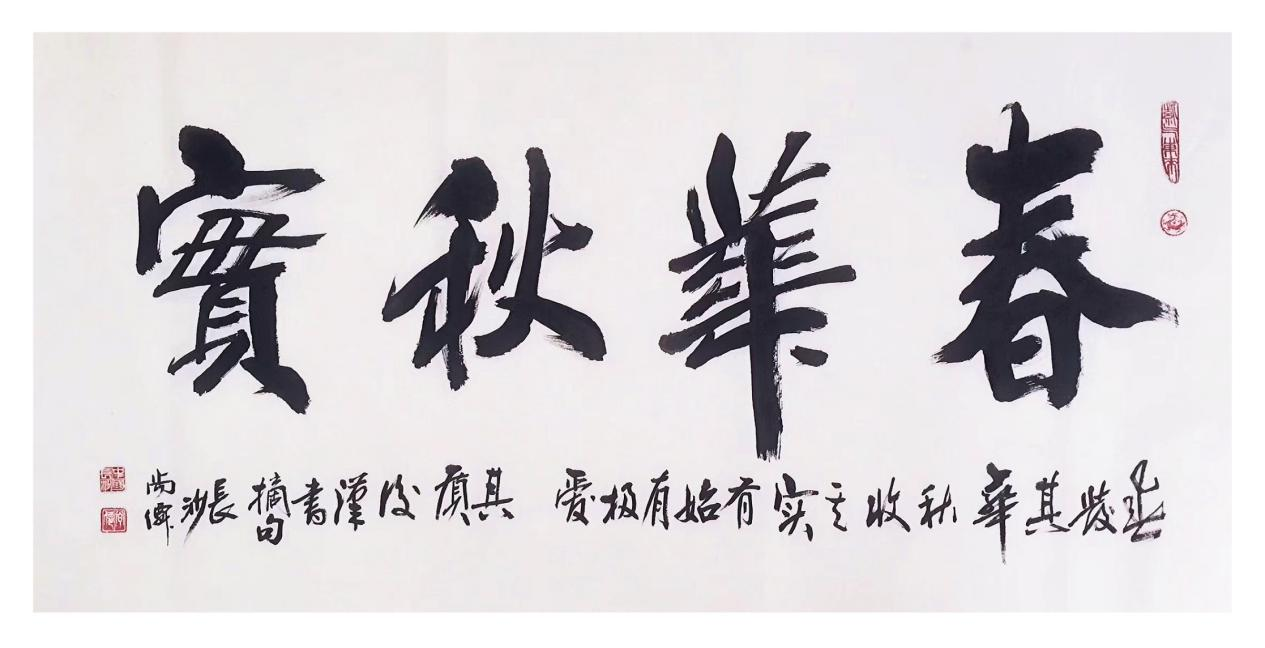 春華秋實
春發其華秋收其实有始有极爰其質後漢書摘句長沙尚偉